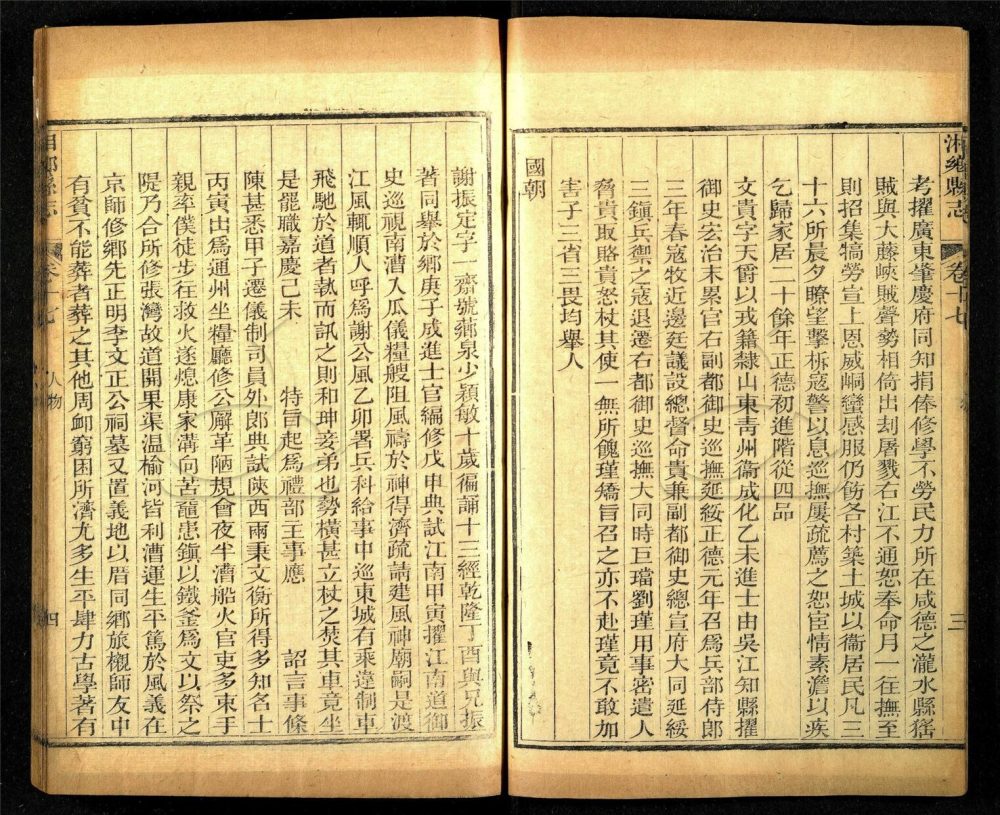 湘鄉縣志
卷十七
三
考擢廣東肇慶府同知捐俸修學不勞民力所在咸德之瀧水縣猺
賊與大藤峽賊聲勢相倚出刦屠戮右江不通恕奉命月一往撫至
則招集犒勞宣上恩威峒蠻感服仍飭各村築土城以衞居民凡三
十六所晨夕瞭望擊柝寇警以息巡撫屢疏薦之恕宦情素澹以疾
乞歸家居二十餘年正德初進階從四品
文貴字天爵以戎籍隸山東靑州衞成化乙未進士由吳江知縣擢
御史宏治末累官右副都御史巡撫延綏正德元年召爲兵部侍郎
三年春寇牧近邊廷議設總督命貴兼副都御史總宣府大同延綏
三鎭兵禦之寇退遷右都御史巡撫大同時巨璫劉瑾用事密遣人
脅貴取賂貴恕杖其使一無所餽瑾矯旨召之亦不赴瑾竟不敢加
害子三省三畏均舉人
國朝
謝振定字一齋號薌泉少穎敏十歲徧誦十三經乾隆丁酉與兄振
著同舉於鄉庚子成進士官編修戊申典試江南甲寅擢江南道御
史巡視南漕入瓜儀糧艘阻風禱於神得濟疏請建風神廟嗣是渡
江風輒順人呼爲謝公風乙卯署兵科給事中巡東城有乘違制車
飛馳於道者執而訊之則和珅妾弟也勢橫甚立杖之焚其車竟坐
是罷職嘉慶己未 特旨起爲禮部主事應 詔言事條
陳甚悉甲子遷儀制司員外郎典試陝西兩秉文衡所得多知名士
丙寅出爲通州坐糧廳修公廨革陋規會夜半漕船火官吏多束手
親率僕徒步往救火遂熄康家溝向苦黿患鎭以鐵釜爲文以祭之
隄乃合所修張灣故道開果渠温榆河皆利漕運生平篤於風義在
京師修鄉先正明李文正公祠墓又置義地以厝同鄉旅櫬師友中
有貧不能葬者葬之其他周卹窮困所濟尤多生平肆力古學著有
鄉縣志
卷十七
人物
四